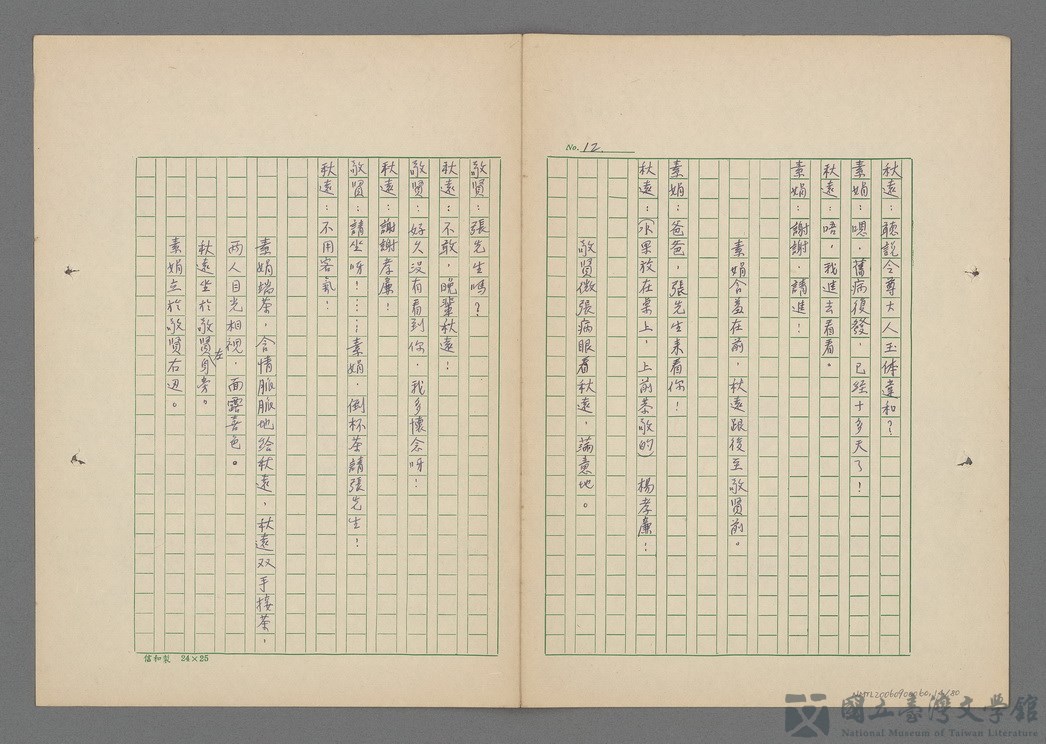 No. 12
秋遠：聽說令尊大人玉体違和？
素娟：嗯，舊病復發，已經十多天了！
秋遠：唔，我進去看看。
素娟：謝謝，請進！
素娟含羞在前，秋遠跟後至敬賢前。
素娟：爸爸，張先生來看你！
秋遠：（水果放在桌上，上前恭敬的）楊孝廉！
敬賢微張病眼看秋遠，滿意地。
敬賢：張先生嗎？
秋遠：不敢，晚輩秋遠！
敬賢：好久沒有看到你，我多懷念呀！
秋遠：謝謝孝廉！
敬賢：請坐呀！……素娟，倒杯茶請張先生！
秋遠：不用客氣！
素娟端茶，含情脈脈地給秋遠，秋遠双手接茶，
两人目光相視，面露喜色。
秋遠坐於敬賢左身旁。
素娟立於敬賢右边。
信和製 24×25
國立臺灣文學館
National Museum of Taiwan Literature